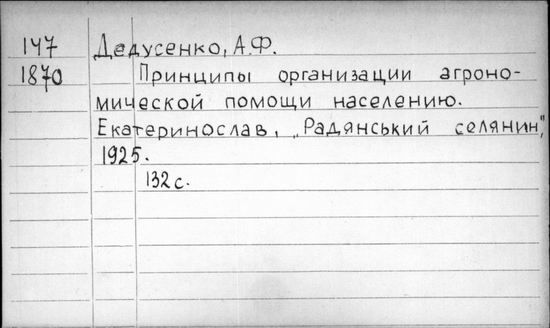 147 Дедусенко, А.Ф.
1870 Принципы организации агроно-
мической помощи населению.
Екатеринослав, „Радянський селянин",
1925.
132 с.